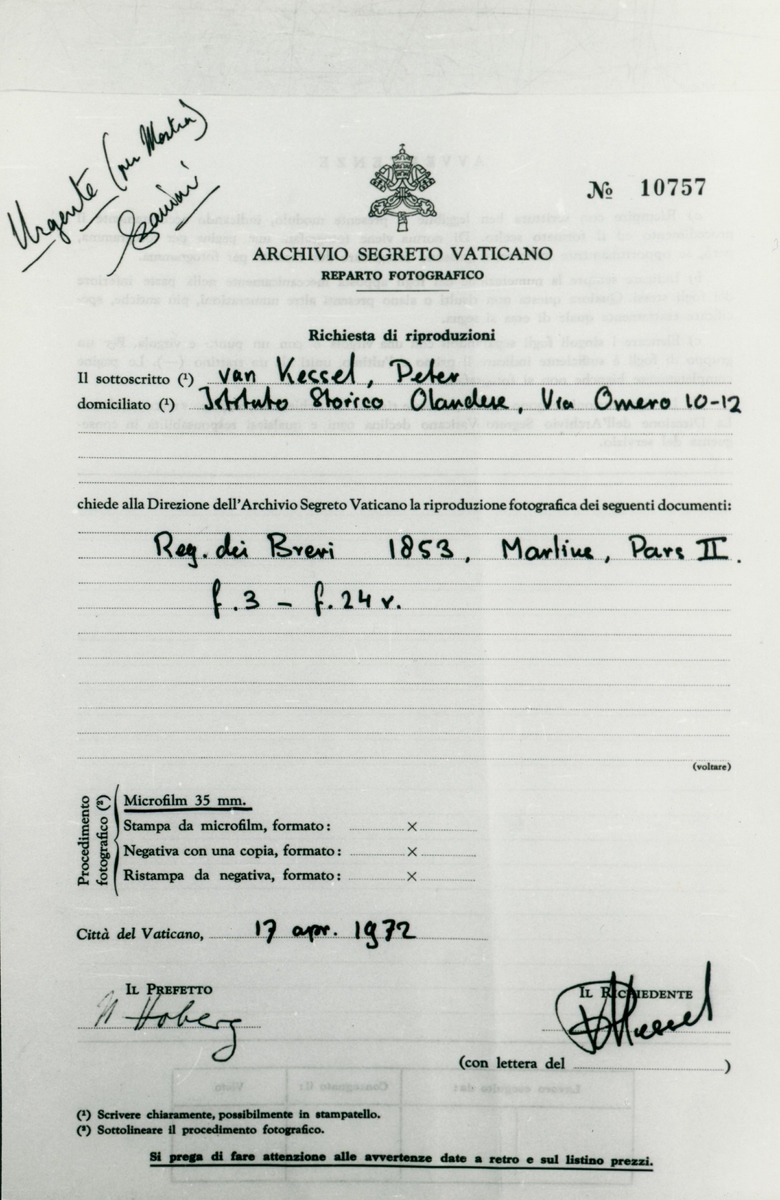 Urgente (per Mostra)
№ 10757
ARCHIVIO SEGRETO VATICANO
REPARTO FOTOGRAFICO
Richiesta di riproduzioni
Il sottoscritto (¹) van Kessel, Peter
domiciliato (¹) Istituto Storico Olandese, Via Omero 10-12
chiede alla Direzione dell'Archivio Segreto Vaticano la riproduzione fotografica dei seguenti documenti:
Reg. dei Brevi 1853, Martius, Pars II.
f.3 - f.24 v.
(voltare)
Procedimento
fotografico (²)
Microfilm 35 mm.
Stampa da microfilm, formato: ×
Negativa con una copia, formato: ×
Ristampa da negativa, formato: ×
Città del Vaticano, 17 apr. 1972
IL PREFETTO
IL RICHIEDENTE
H Hoberg
PvKessel
(con lettera del )
(¹) Scrivere chiaramente, possibilmente in stampatello.
(²) Sottolineare il procedimento fotografico.
Si prega di fare attenzione alle avvertenze date a retro e sul listino prezzi.